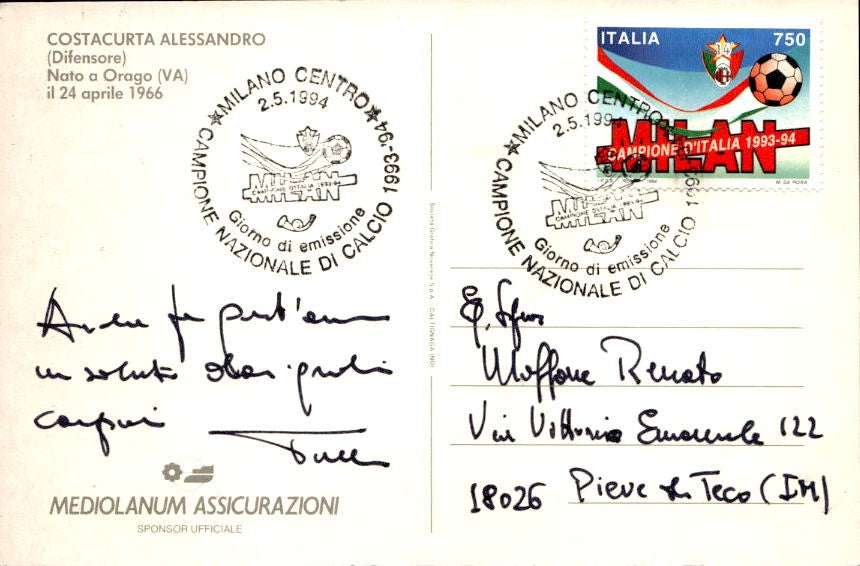 COSTACURTA ALESSANDRO
(Difensore)
Nato a Orago (VA)
il 24 aprile 1966
★MILANO CENTRO★
2.5.1994
MILAN
CAMPIONE D'ITALIA 1993-94
Giorno di emissione
CAMPIONE NAZIONALE DI CALCIO 1993-'94
ITALIA 750
14
MILAN
CAMPIONE D'ITALIA 1993-94
1994 M. DE ROSA
★MILANO CENTRO
2.5.1994
MILAN
CAMPIONE D'ITALIA 1993-94
Giorno di emissione
CAMPIONE NAZIONALE DI CALCIO 1993
Anche per quest'anno
un saluto dai
campioni
Società Grafica Novarese S.p.A. - CALTIGNAGA (NO)
Renato
Via Vittorio Emanuele 122
18026 Pieve di Teco (IM)
MEDIOLANUM ASSICURAZIONI
SPONSOR UFFICIALE